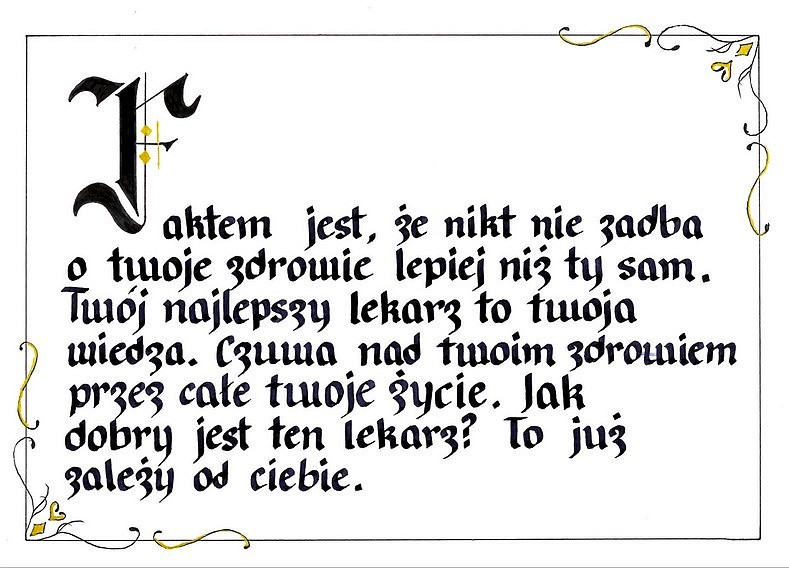 Faktem jest, że nikt nie zadba
o twoje zdrowie lepiej niż ty sam.
Twój najlepszy lekarz to twoja
wiedza. Czuwa nad twoim zdrowiem
przez całe twoje życie. Jak
dobry jest ten lekarz? To już
zależy od ciebie.